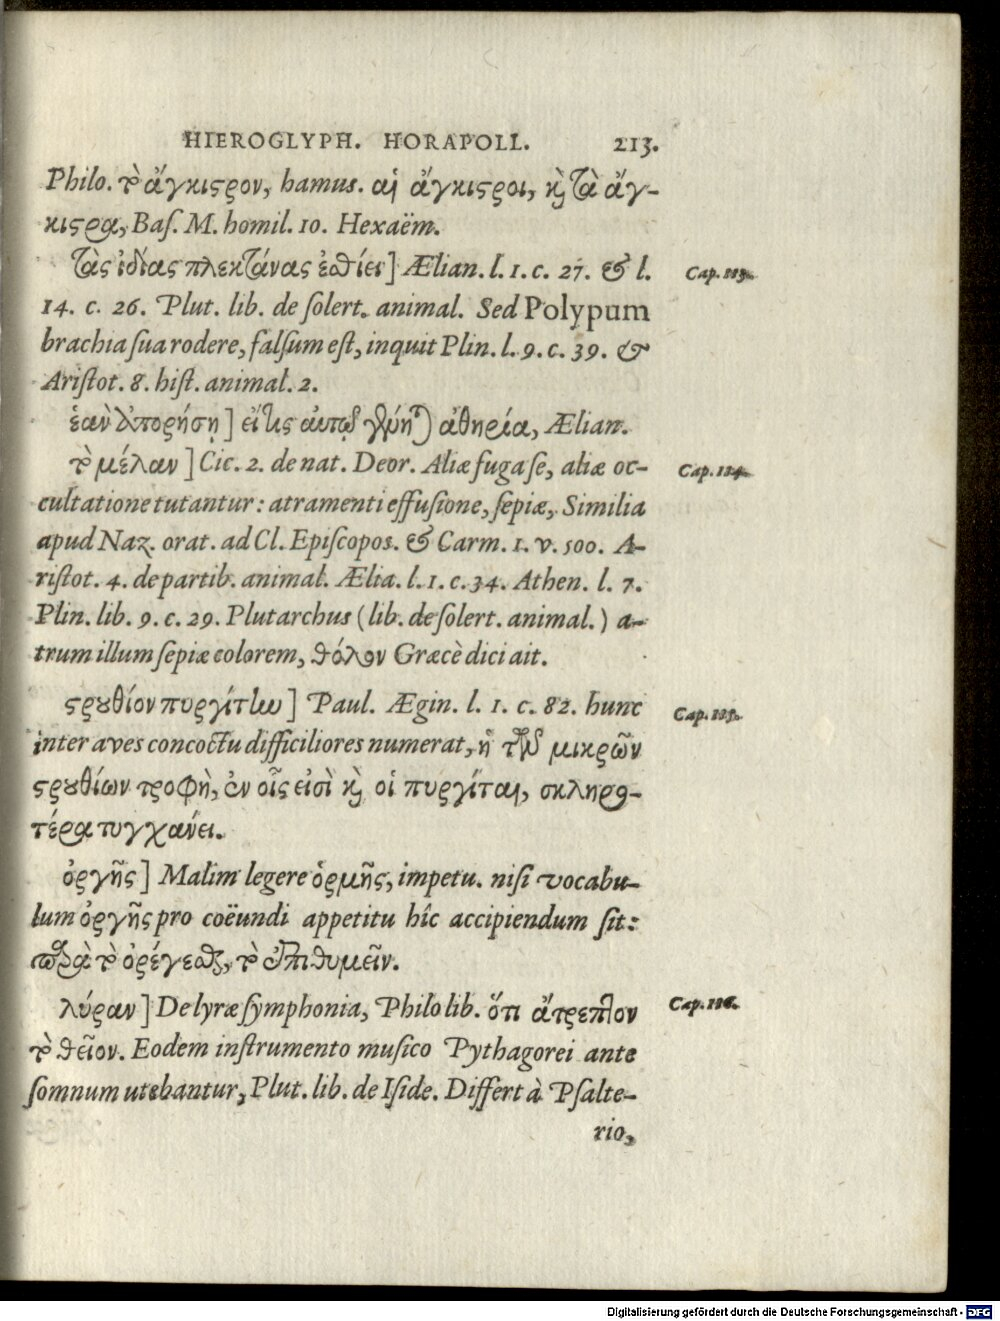 HIEROGLYPH. HORAPOLL. 213.
Philo. τὸ ἄγκιςρον, hamus. αἱ ἄγκιςροι, κὶ τὰ ἄγ-
κιςρα, Baſ. M. homil. 10. Hexaëm.
τὰς ἰδίας πλεκτάνας ἐσθίει] Ælian. l. 1. c. 27. & l. Cap. 113.
14. c. 26. Plut. lib. de ſolert. animal. Sed Polypum
brachia ſua rodere, falſum eſt, inquit Plin. l. 9. c. 39. &
Ariſtot. 8. hiſt. animal. 2.
ἐὰν ἀπορήσῃ] εἴ τις αὐτῷ γένηται ἀθηρία, Ælian.
τὸ μέλαν] Cic. 2. de nat. Deor. Aliæ fuga ſe, aliæ oc- Cap. 114.
cultatione tutantur: atramenti effuſione, ſepiæ, Similia
apud Naz. orat. ad Cl. Epiſcopos. & Carm. 1. v. 500. A-
riſtot. 4. de partib. animal. Ælia. l. 1. c. 34. Athen. l. 7.
Plin. lib. 9. c. 29. Plutarchus (lib. de ſolert. animal.) a-
trum illum ſepiæ colorem, θόλον Græcè dici ait.
ςρȣθίον πυργίτην] Paul. Ægin. l. 1. c. 82. hunc Cap. 115.
inter aves concoctu difficiliores numerat, ἡ τῶν μικρῶν
ςρȣθίων τροφὴ, ἐν οἷς εἰσὶ κὶ οἱ πυργίται, σκληρο-
τέρα τυγχάνει.
ὀργῆς] Malim legere ὁρμῆς, impetu. niſi vocabu-
lum ὀργῆς pro coëundi appetitu hîc accipiendum ſit:
παρὰ τὸ ὀρέγεσθαι, τὸ ἐπιθυμεῖν.
λύραν] De lyræ ſymphonia, Philo lib. ὅτι ἄτρεπτον Cap. 116.
τὸ θεῖον. Eodem inſtrumento muſico Pythagorei ante
ſomnum utebantur, Plut. lib. de Iſide. Differt à Pſalte-
rio,
Digitalisierung gefördert durch die Deutsche Forschungsgemeinschaft - DFG